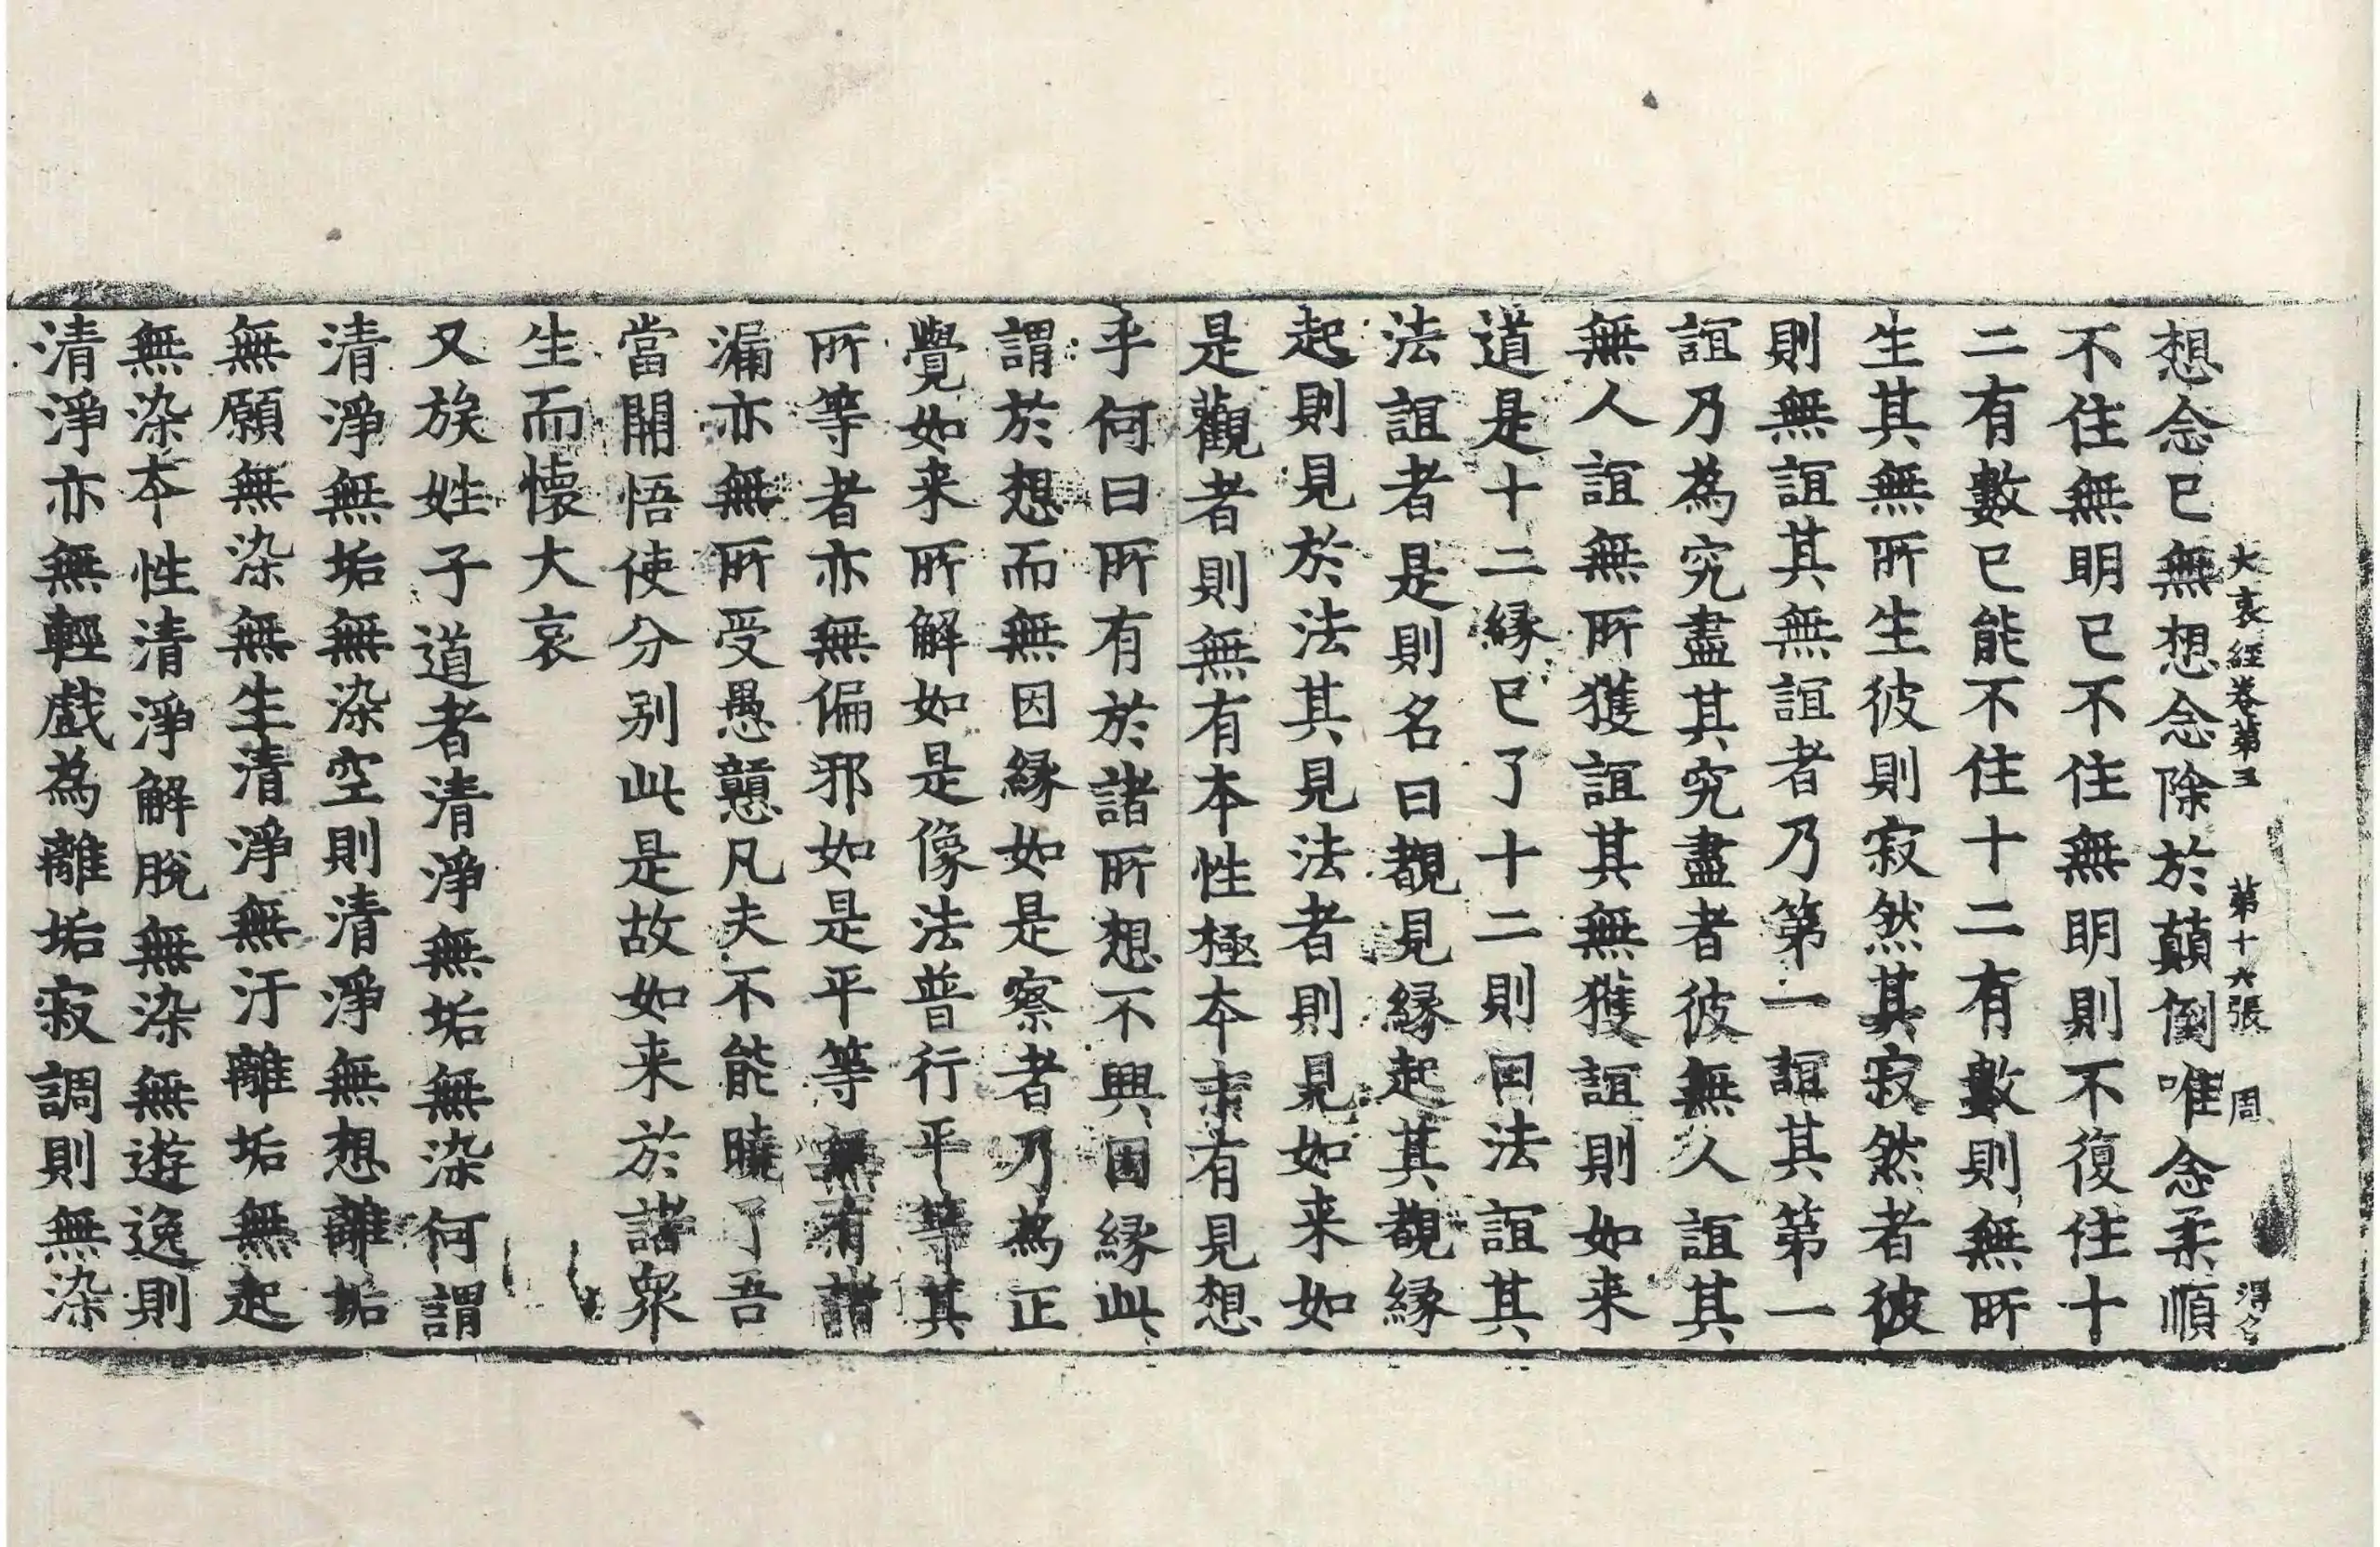 大哀經卷第五 第十六張 周
想念已無想念除於顛倒唯念柔順
不住無明已不住無明則不復住十
二有數已能不住十二有數則無所
生其無所生彼則寂然其寂然者彼
則無誼其無誼者乃第一誼其第一
誼乃為究盡其究盡者彼無人誼其
無人誼無所獲誼其無獲誼則如来
道是十二緣已了十二則曰法誼其
法誼者是則名曰覩見緣起其覩緣
起則見於法其見法者則見如来如
是觀者則無有本性極本索有見想
乎何曰所有於諸所想不興因緣此
謂於想而無因緣如是察者乃為正
覺如来所解如是像法普行平等其
所等者亦無偏邪如是平等無有諸
漏亦無所受愚戇凡夫不能曉了吾
當開悟使分別此是故如来於諸衆
生而懷大哀
又族姓子道者清淨無垢無染何謂
清淨無垢無染空則清淨無想離垢
無願無染無生清淨無汙離垢無起
無染本性清淨解脫無染無遊逸則
清淨亦無輕戲為離垢寂調則無染